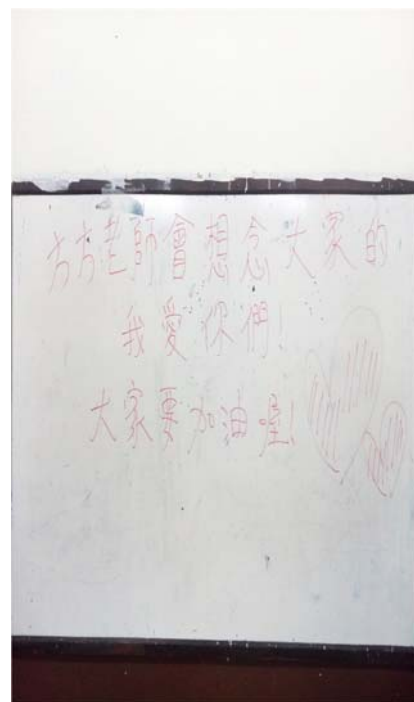 方方老師會想念大家的
我愛你們!
大家要加油喔!